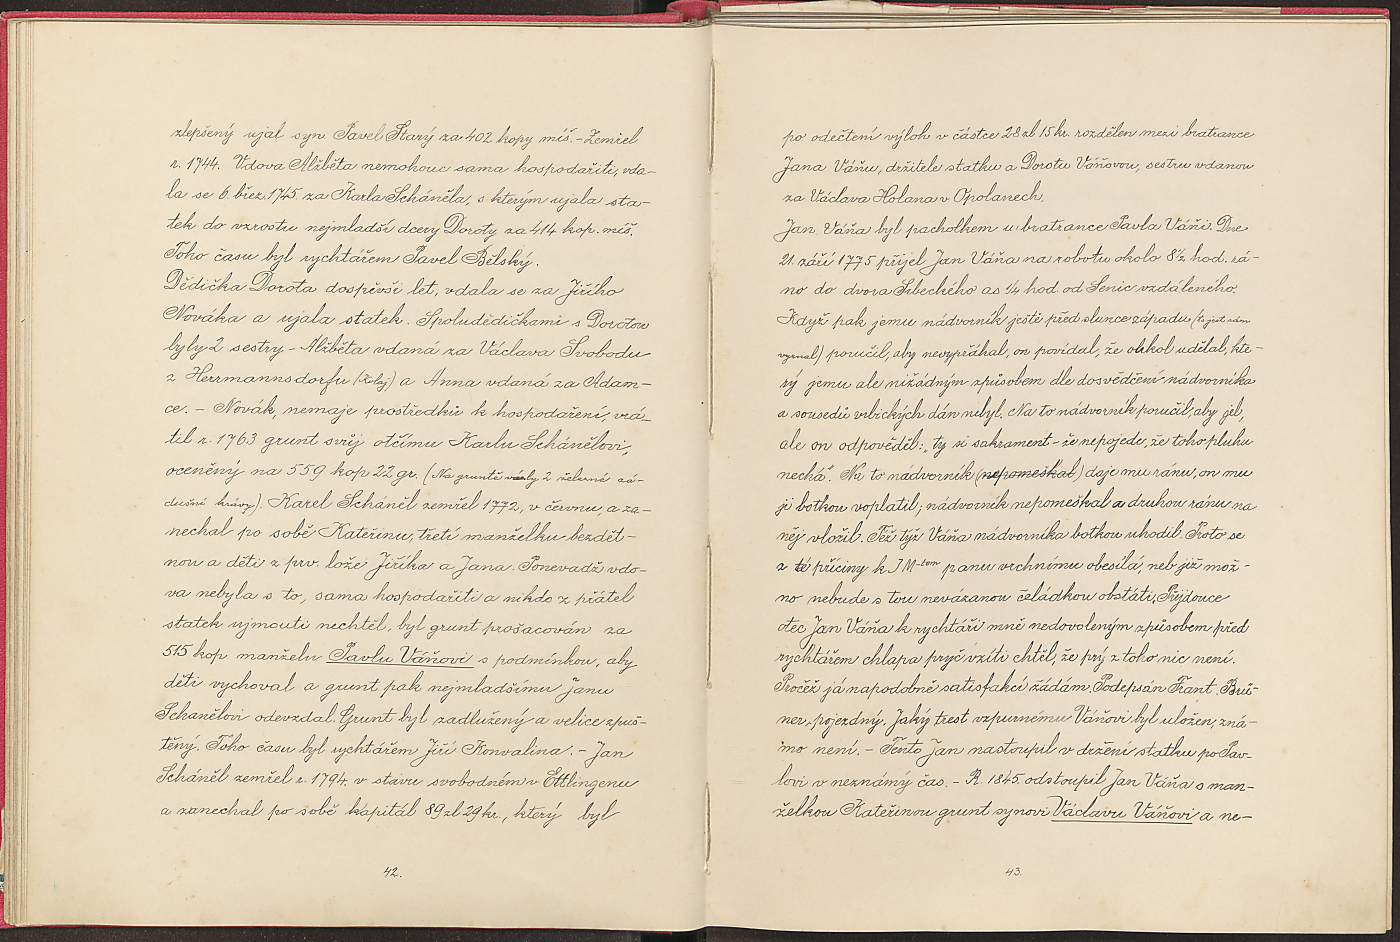 zlepšený ujal syn Pavel Starý za 402 kopy míš. - Zemřel
r. 1744. Vdova Alžběta nemohouc sama hospodařiti, vda-
la se 6. břez. 1745. za Karla Scháněla, s kterým ujala sta-
tek do vzrostu nejmladší dcery Doroty za 414 kop. míš.
Toho času byl rychtářem Pavel Bělský.
Dědička Dorota dospěvši let, vdala se za Jiřího
Nováka a ujala statek. Spoludědičkami s Dorotou
byly 2 sestry - Alžběta vdaná za Václava Svobodu
z Herrmannsdorfu (Kolaj) a Anna vdaná za Adam-
ce. - Novák, nemaje prostředků k hospodaření, vrá-
til r. 1763 grunt svůj otčímu Karlu Schánělovi,
oceněný na 559 kop 22 gr. (Na gruntě vázly 2 železné zá-
dušní krávy). Karel Scháněl zemřel 1772, v červnu, a za-
nechal po sobě Kateřinu, třetí manželku bezdět-
nou a děti z prv. lože Jiříka a Jana. Poněvadž vdo-
va nebyla s to, sama hospodařiti a nikdo z přátel
statek ujmouti nechtěl, byl grunt prošacován za
515 kop manželu Pavlu Váňovi s podmínkou, aby
děti vychoval a grunt pak nejmladšímu Janu
Schanělovi odevzdal. Grunt byl zadlužený a velice zpuš-
těný. Toho času byl rychtářem Jiří Kenvalina. - Jan
Scháněl zemřel r. 1794. v stavu svobodném v Ettlingenu
a zanechal po sobě kapitál 89 zl 29 kr., který byl
42.
po odečtení výloh v částce 28 zl 15 kr. rozdělen mezi bratrance
Jana Váňu, držitele statku a Dorotu Váňovou, sestru vdanou
za Václava Holana v Opolanech.
Jan Váňa byl pacholkem u bratrance Pavla Váňi. Dne
21. září 1775 přijel Jan Váňa na robotu okolo 8½ hod. rá-
no do dvora Srbeckého as ¼ hod od Senic vzdáleného.
Když pak jemu nádvorník ještě před slunce západu (to jest sám
vyznal) poručil, aby nevypřáhal, on povídal, že oukol udělal, kte-
rý jemu ale nižádným způsobem dle dosvědčení nádvorníka
a sousedů vrbických dán nebyl. Na to nádvorník poručil, aby jel,
ale on odpověděl: „ty si sakrament - že nepojede, že toho pluhu
nechá“. Na to nádvorník (nepomeškal) daje mu ránu, on mu
ji botkou voplatil; nádvorník nepomeškal a druhou ránu na
něj vložil. Též týž Váňa nádvorníka botkou uhodil. Proto se
z té příčiny k J M-tem panu vrchnímu obesílá, neb již mož-
no nebude s tou nevázanou čeládkou obstáti. Přijdouce
otec Jan Váňa k rychtáři mně nedovoleným způsobem před
rychtářem chlapa pryč vzíti chtěl, že prý z toho nic není.
Pročež já napodobně satisfakcí žádám. Podepsán Frant.
ner, pojezdný. Jaký trest vzpurnému Váňovi byl uložen, zná-
mo není. - Tento Jan nastoupil v držení statku po Pav-
lovi v neznámý čas. - R. 1845. odstoupil Jan Váňa s man-
želkou Kateřinou grunt synovi Václavu Váňovi a ne-
43.